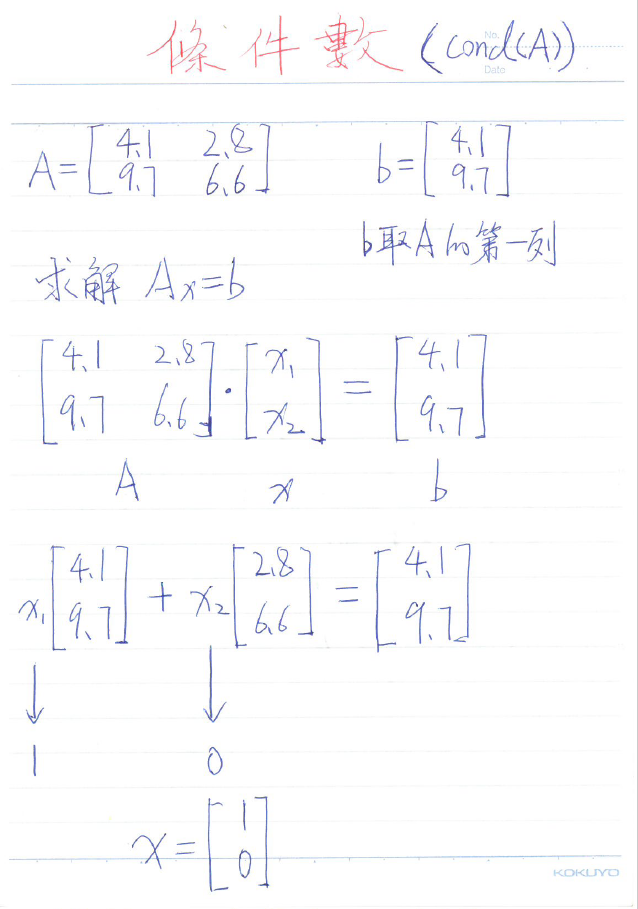 條件數 (cond(A))
No.
Date
A = [4.1 2.8
9.7 6.6]
b = [4.1
9.7]
b取A的第一列
求解 Ax=b
[4.1 2.8
9.7 6.6] · [x₁
x₂] = [4.1
9.7]
A x b
x₁ [4.1
9.7] + x₂ [2.8
6.6] = [4.1
9.7]
↓ ↓
1 0
x = [1
0]
KOKUYO